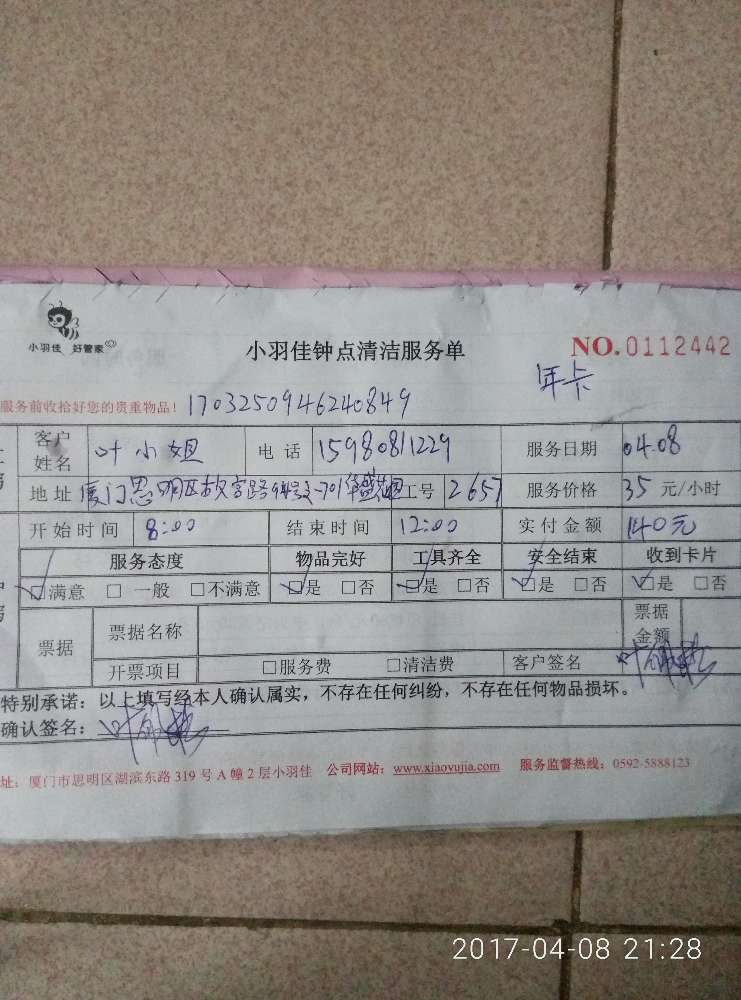 小羽佳 好管家
小羽佳钟点清洁服务单
NO.0112442
年卡
服务前收拾好您的贵重物品! 1703250946240849
客户姓名 叶小姐 电话 15980811229 服务日期 04.08
地址 厦门思明区 701 工号 2657 服务价格 35 元/小时
开始时间 8:00 结束时间 12:00 实付金额 140元
服务态度 物品完好 工具齐全 安全结束 收到卡片
☑满意 □一般 □不满意 ☑是 □否 ☑是 □否 ☑是 □否 ☑是 □否
票据 票据名称 票据金额
开票项目 □服务费 □清洁费 客户签名 叶
特别承诺：以上填写经本人确认属实，不存在任何纠纷，不存在任何物品损坏。
确认签名：叶
址：厦门市思明区湖滨东路 319 号 A 幢 2 层小羽佳 公司网站：www.xiaoyujia.com 服务监督热线：0592-5888123
2017-04-08 21:28